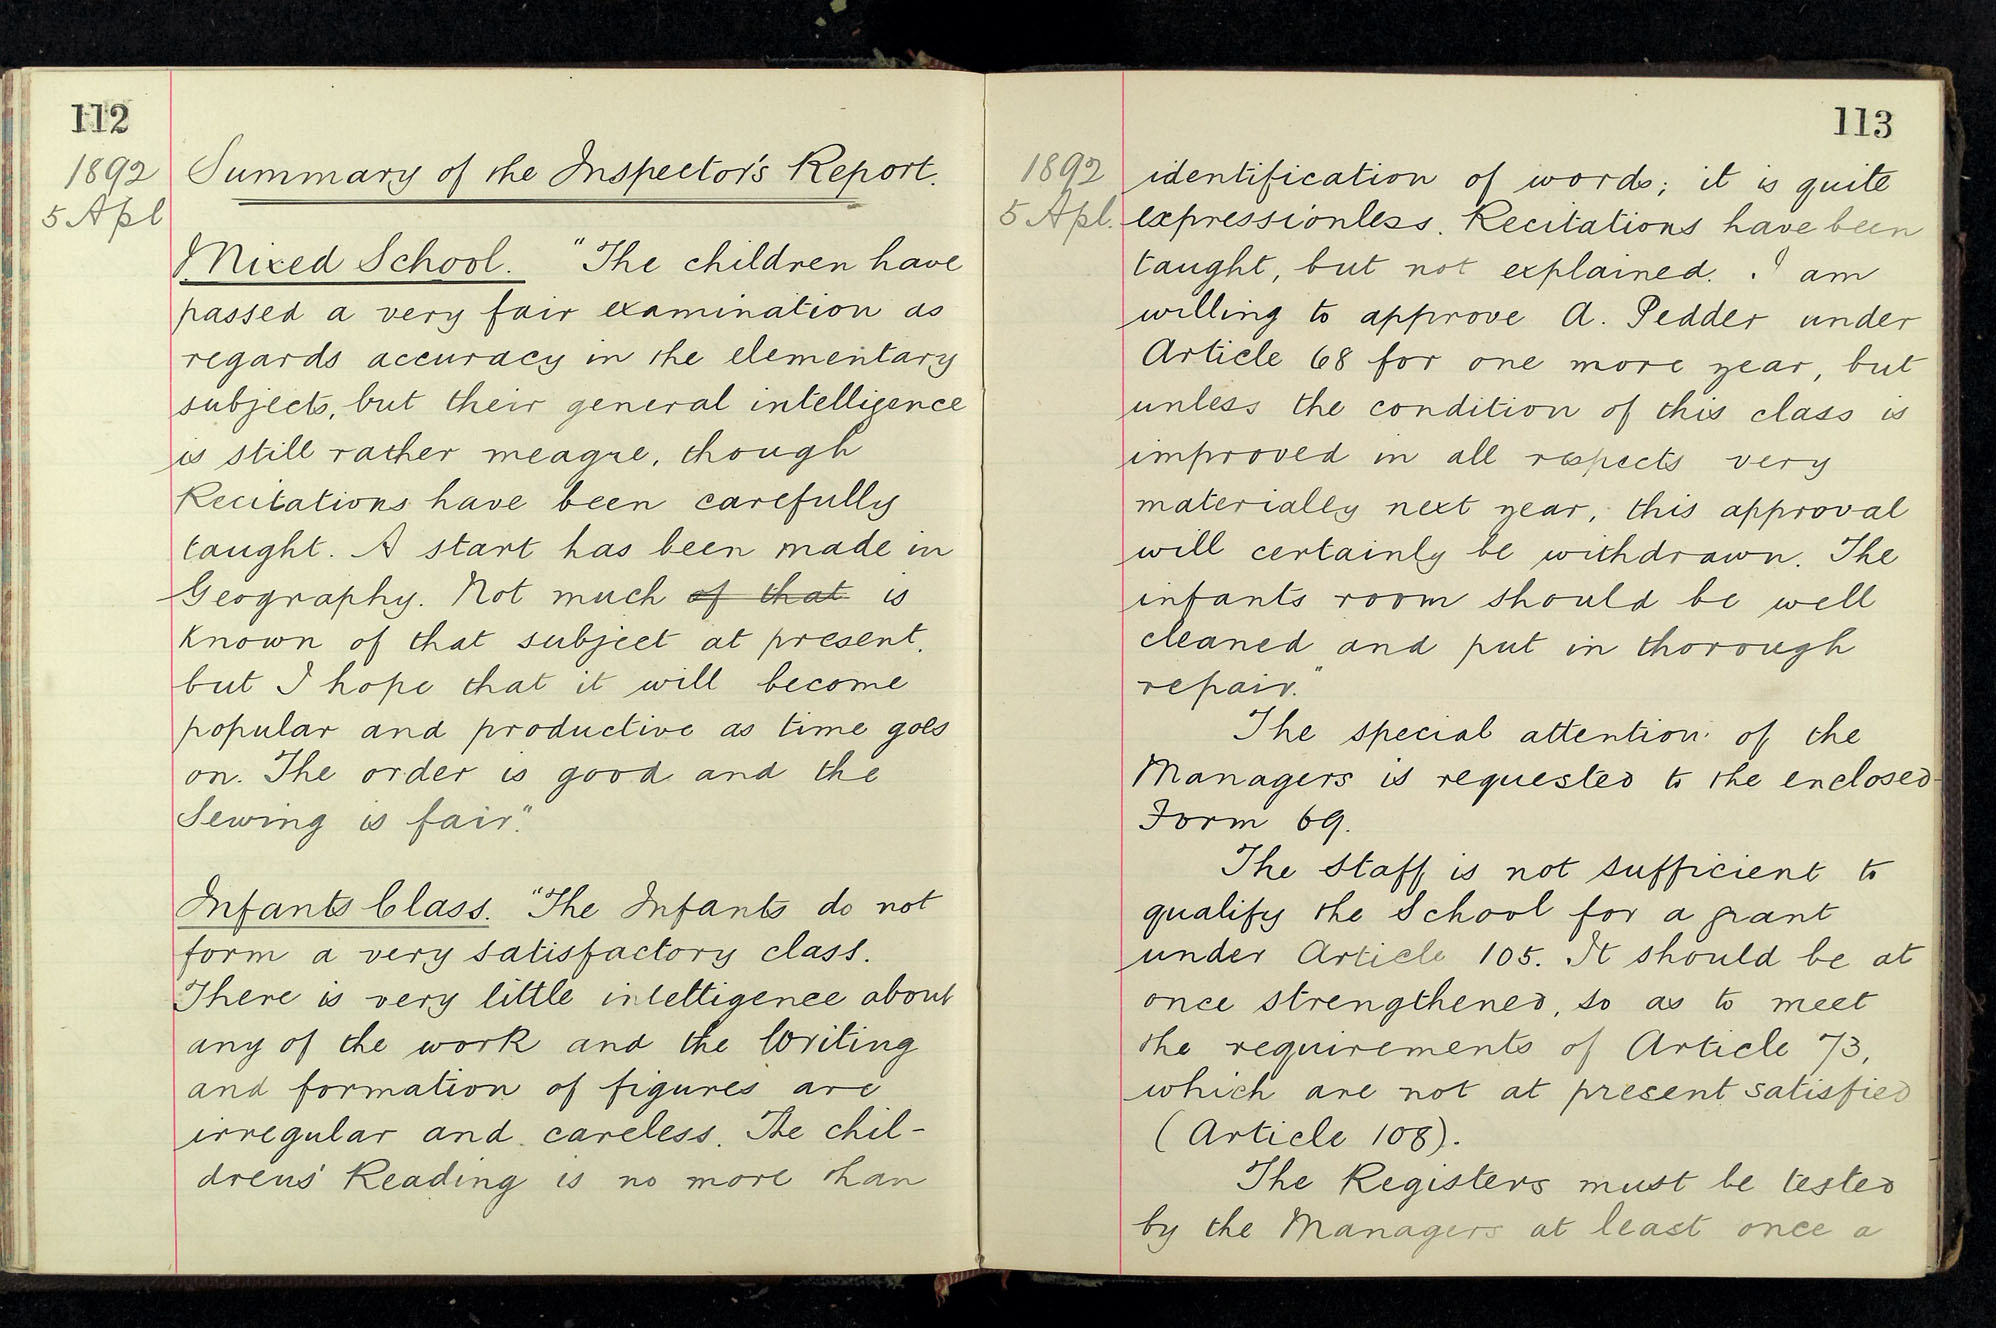 112
1892
5 Apl
Summary of the Inspector's Report.
Mixed School. "The children have
passed a very fair examination as
regards accuracy in the elementary
subjects, but their general intelligence
is still rather meagre, though
Recitations have been carefully
taught. A start has been made in
Geography. Not much of that is
known of that subject at present,
but I hope that it will become
popular and productive as time goes
on. The order is good and the
Sewing is fair."
Infants Class. "The Infants do not
form a very satisfactory class.
There is very little intelligence about
any of the work and the Writing
and formation of figures are
irregular and careless. The chil-
drens' Reading is no more than
113
1892
5 Apl.
identification of words; it is quite
expressionless. Recitations have been
taught, but not explained. I am
willing to approve A. Pedder under
Article 68 for one more year, but
unless the condition of this class is
improved in all respects very
materially next year, this approval
will certainly be withdrawn. The
infants room should be well
cleaned and put in thorough
repair."
The special attention of the
Managers is requested to the enclosed
Form 69.
The Staff is not sufficient to
qualify the School for a grant
under Article 105. It should be at
once strengthened, so as to meet
the requirements of Article 73,
which are not at present satisfied
(Article 108).
The Registers must be tested
by the Managers at least once a